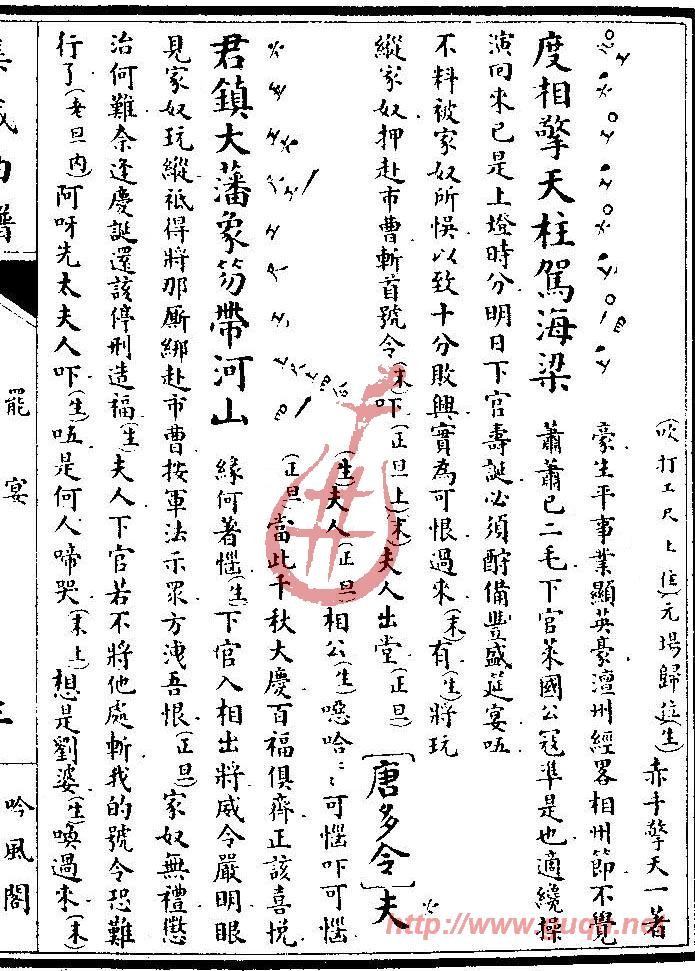 (吹打工尺上住)元場歸位(生)赤手擎天一著
豪生平事業顯英豪澶州經畧相州節不覺
度相擎天柱駕海梁 蕭蕭已二毛下官萊國公寇準是也適纔操
演回來已是上燈時分明日下官壽誕必須酧備豐盛莚宴㕶
不料被家奴所悞以致十分敗興實為可恨過來(末)有(生)將玩
縱家奴押赴市曹斬首號令(末)吓(正旦上)(末)夫人出堂(正旦)[唐多令]夫
(生)夫人(正旦)相公(生)噁哈〻可惱吓可惱
(正旦)當此千秋大慶百福俱齊正該喜悅
君鎮大藩象笏帶河山 緣何著惱(生)下官入相出將威令嚴明眼
見家奴玩縱祗得將那厮綁赴市曹按軍法示眾方洩吾恨(正旦)家奴無禮懲
治何難奈逢慶誕還該停刑造福(生)夫人下官若不將他處斬我的號令恐難
行了(老旦內)阿呀先太夫人吓(生)㕶是何人啼哭(末上)想是劉婆(生)喚過來(末)
集成曲譜
罷宴
吟風閣
http://www.guqu.net